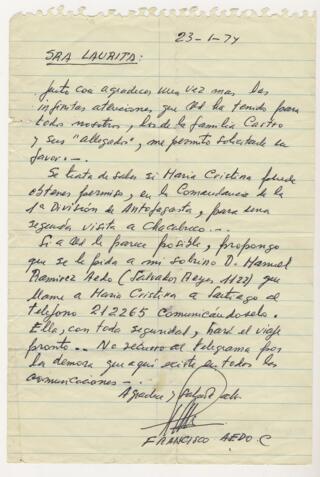 23-1-74
SRA LAURITA:
Junto con agradecer una vez mas las
infinitas atenciones que Ud ha tenido para
todos nosotros, los de la familia Castro
y sus "allegados", me permito solicitarle un
favor.-.
Se trata de saber si Maria Cristina puede
obtener permiso, en la Comandancia de la
1ª División de Antofagasta, para una
segunda visita a Chacabuco...
Si a Ud le parece posible, propongo
que se le pida a mi sobrino D. Manuel
Ramirez Aedo (Salvador Reyes 1122) que
llame a Maria Cristina a Santiago al
teléfono 212265 comunicándoselo.
Ella, con toda seguridad, hará el viaje
pronto.. No recurro al telegrama por
la demora que aquí existe en todos los
comunicaciones-.
Agradece y
FRANCISCO AEDO C